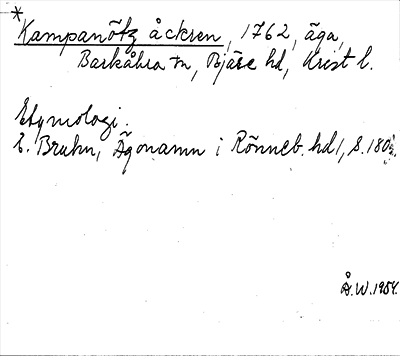 *
Kampanötz åckren, 1762, äga,
Barkåkra sn, Bjäre hd, Krist l.
Etymologi.
E. Bruhn, Ägonamn i Rönneb. hd 1, s.
Å.W. 1954.